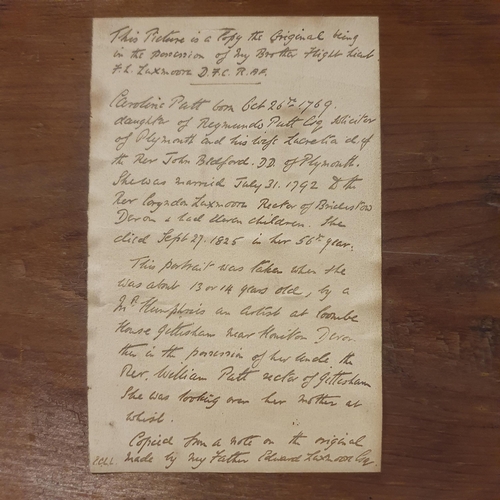 This Picture is a Copy the Original being
in the possession of my Brother Flight Lieut
F. L. Luxmoore D.F.C. R.A.F.
Caroline Putt born Oct 26th 1769.
daughter of Reymundo Putt Esq Solicitor
of Plymouth and his wife Lucretia d. of
the Rev John Bedford. D.D. of Plymouth.
She was married July 31. 1792 to the
Rev Coryndon Luxmoore Rector of Bridestow
Devon & had eleven children. She
died Sept 27. 1825 in her 56th year.
This portrait was taken when she
was about 13 or 14 years old, by a
Mr Humphries an Artist at Coombe
House Gittisham near Honiton Devon
then in the possession of her Uncle the
Rev. William Putt rector of Gittisham
She was looking over her mother at
whist.
Copied from a note on the original
made by my Father Edward Luxmoore Esq.